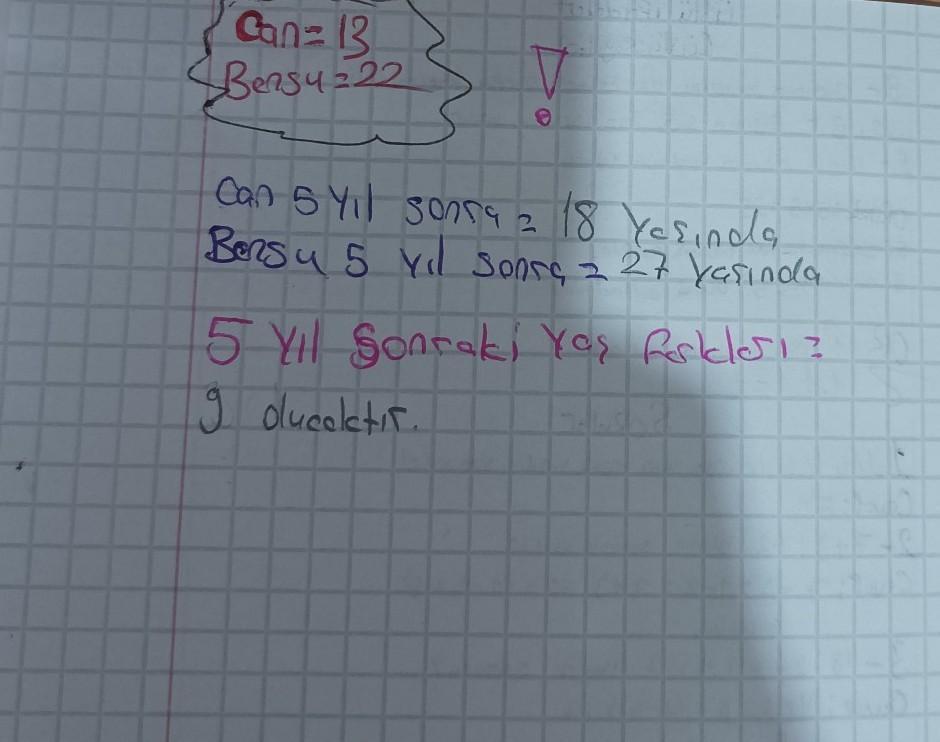 Can = 13
Bensu = 22
!
Can 5 yıl sonra = 18 Yaşında
Bensu 5 yıl sonra = 27 Yaşında
5 Yıl Sonraki Yaş farkları =
9 olucaktır.